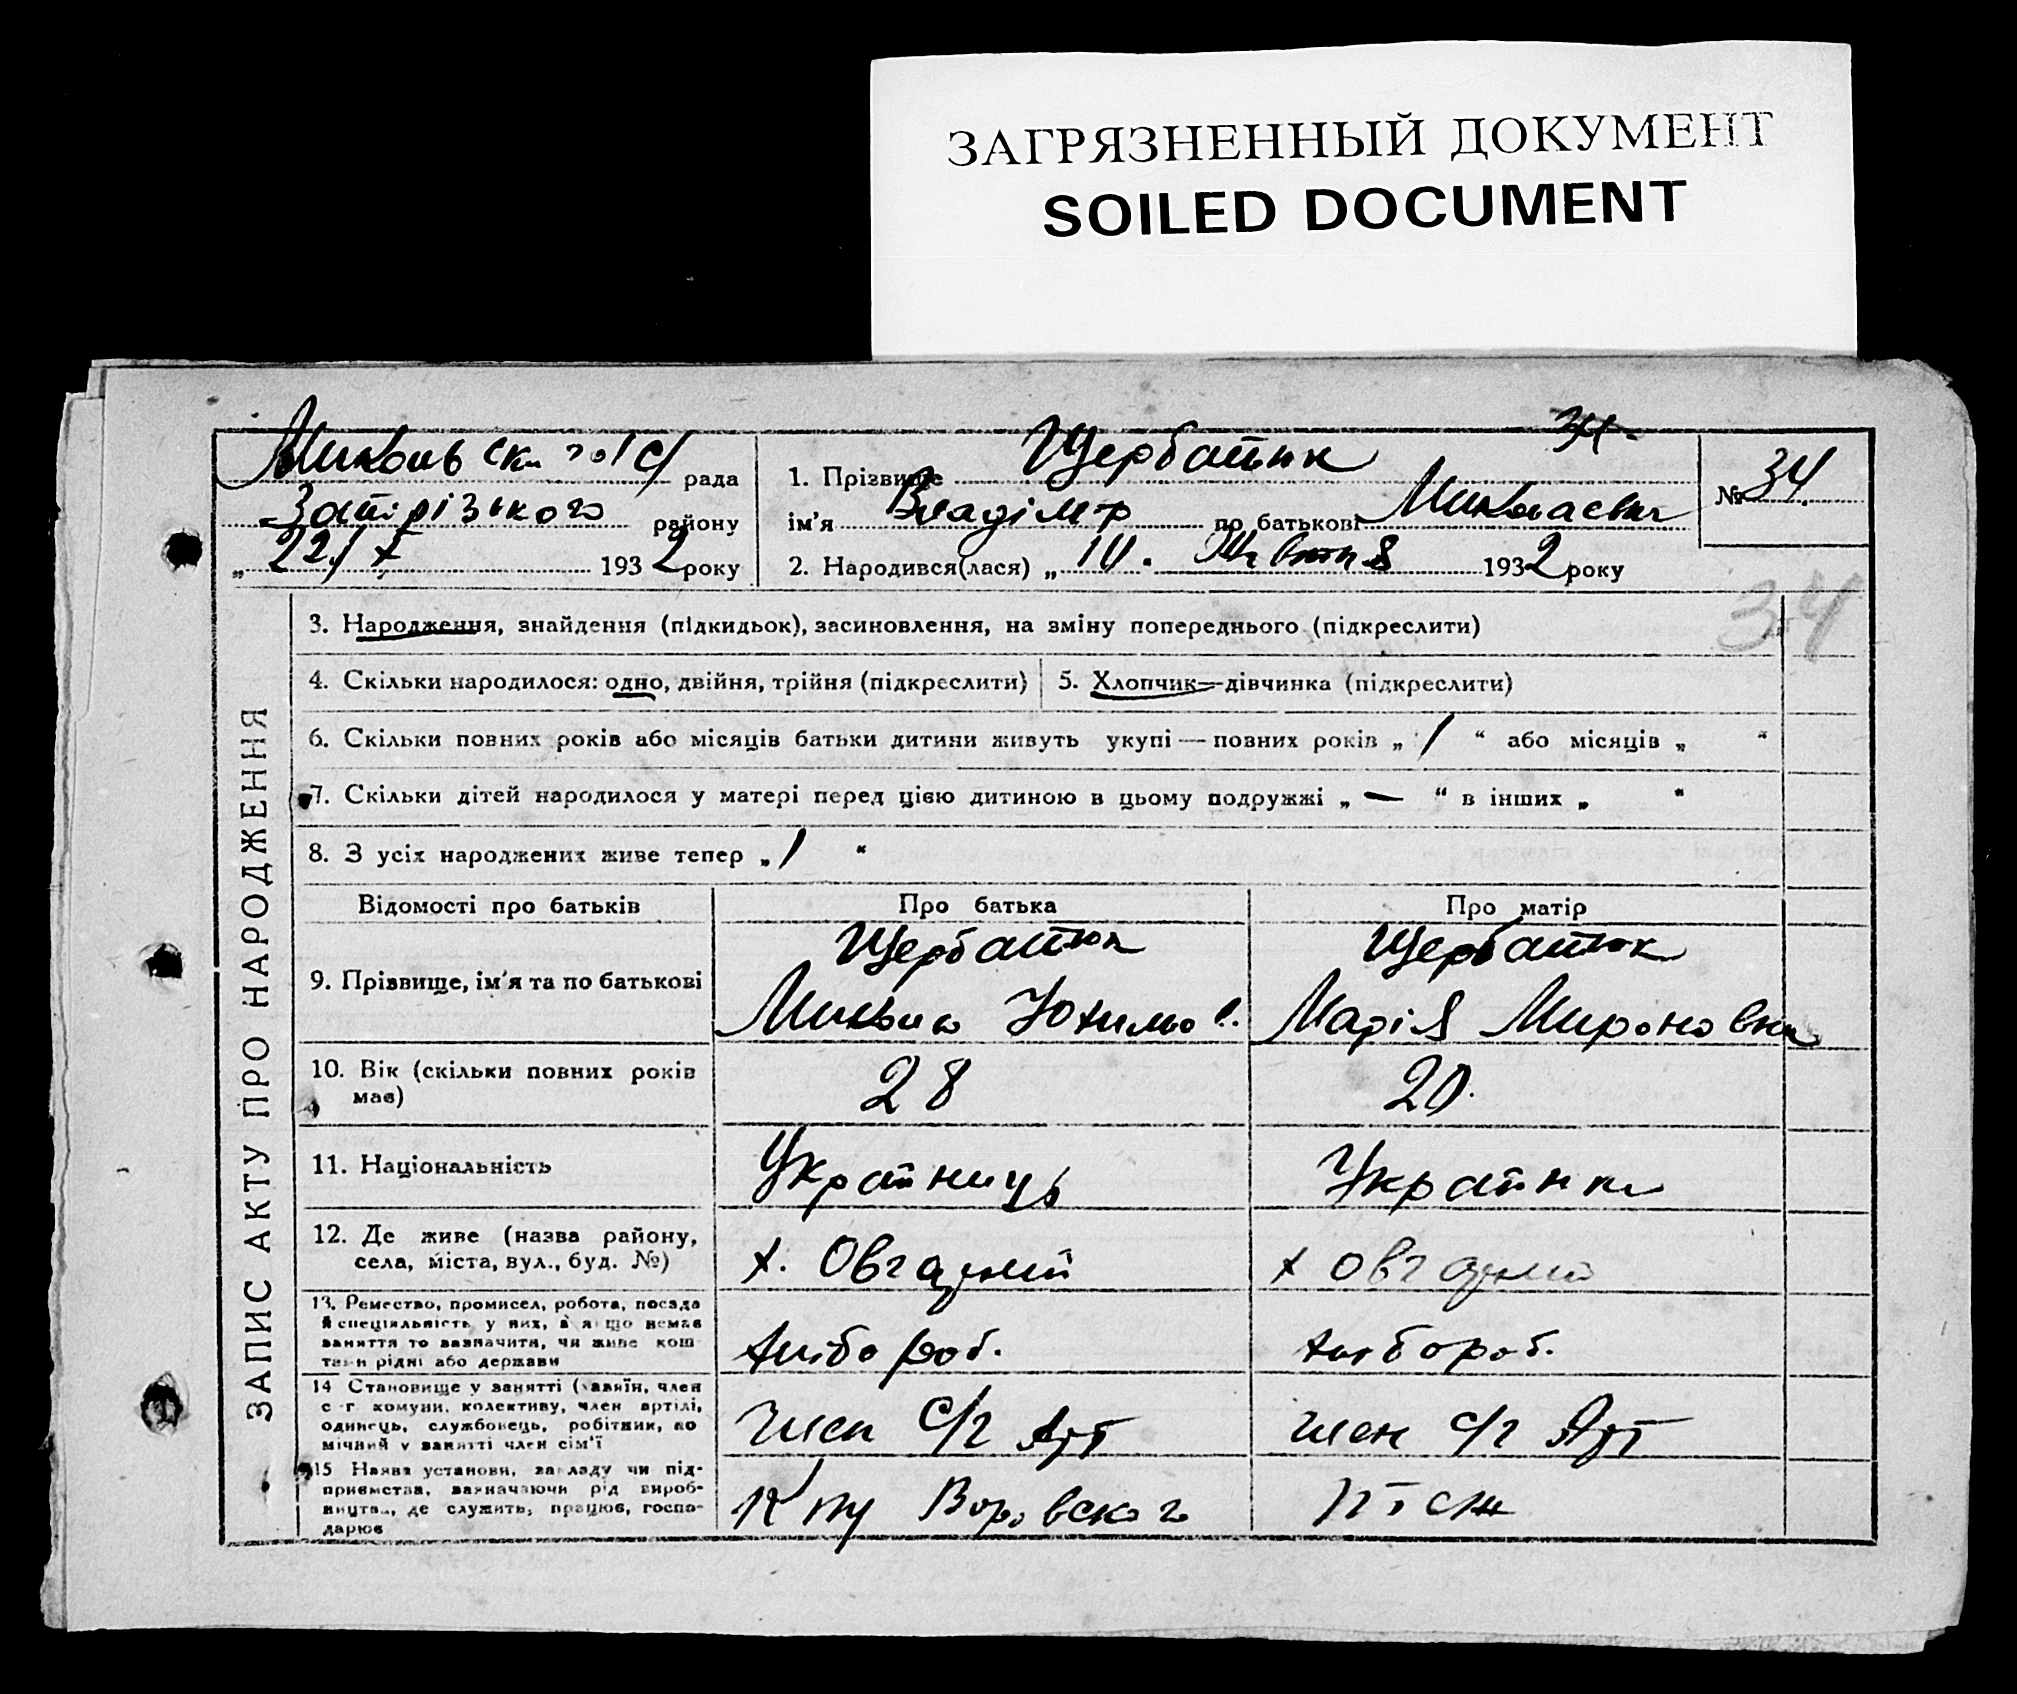 ЗАГРЯЗНЕННЫЙ ДОКУМЕНТ
SOILED DOCUMENT
34
рада
району
„22/X 1932 року
1. Прізвище Щербатюк
ім'я Владімір по батькові Миколаєвич
2. Народився(лася) „10. Жовтня 1932 року
№ 34
34
ЗАПИС АКТУ ПРО НАРОДЖЕННЯ
3. Народження, знайдення (підкидьок), засиновлення, на зміну попереднього (підкреслити)
4. Скільки народилося: одно, двійня, трійня (підкреслити)
5. Хлопчик—дівчинка (підкреслити)
6. Скільки повних років або місяців батьки дитини живуть укупі — повних років „ 1 “ або місяців „ “
7. Скільки дітей народилося у матері перед цією дитиною в цьому подружжі „ — “ в інших „ “
8. З усіх народжених живе тепер „ 1 “
Відомості про батьків
Про батька
Про матір
9. Прізвище, ім'я та по батькові
Щербатюк
Микола Юхимов.
Щербатюк
Марія Мироновна
10. Вік (скільки повних років
має)
28
20.
11. Національність
Українць
Українка
12. Де живе (назва району,
села, міста, вул., буд. №)
х.
х
13. Ремество, промисел, робота, посада
й спеціяльність у них, а якщо немає
заняття то зазначити, чи живе кош
тами рідні або держави
хлібороб.
хлібороб.
14 Становище у занятті (хазяїн, член
с-г комуни, колективу, член артілі,
одинець, службовець, робітник, по
мічний у занятті член сім'ї
член С/г Арт
член с/г Арт
15 Назва установи, закладу чи під-
приємства, зазначаючи рід вироб-
ництва, де служить, працює, госпо-
дарює
Воровского